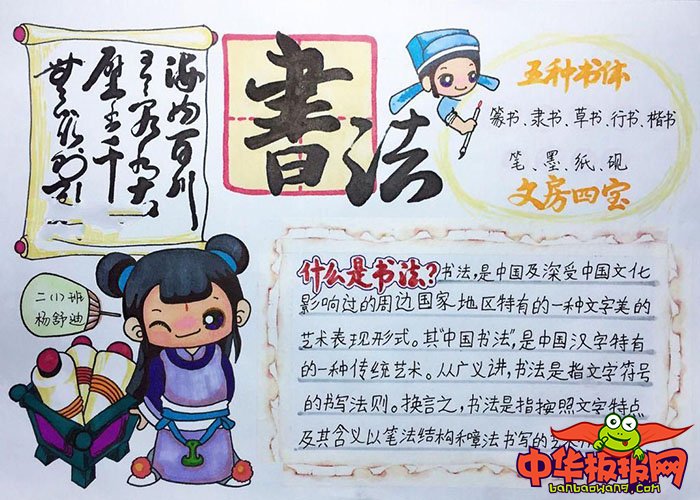 海内百川
有容乃大
壁立千
無欲则刚
書法
五种书体
篆书、隶书、草书、行书、楷书
笔、墨、纸、砚
文房四宝
二(1)班
杨舒迪
什么是书法?书法,是中国及深受中国文化
影响过的周边国家地区特有的一种文字美的
艺术表现形式。其"中国书法",是中国汉字特有
的一种传统艺术。从广义讲,书法是指文字符号
的书写法则。换言之,书法是指按照文字特点
及其含义以笔法结构和噇法书写的艺
中华板报网
banbaowang.com